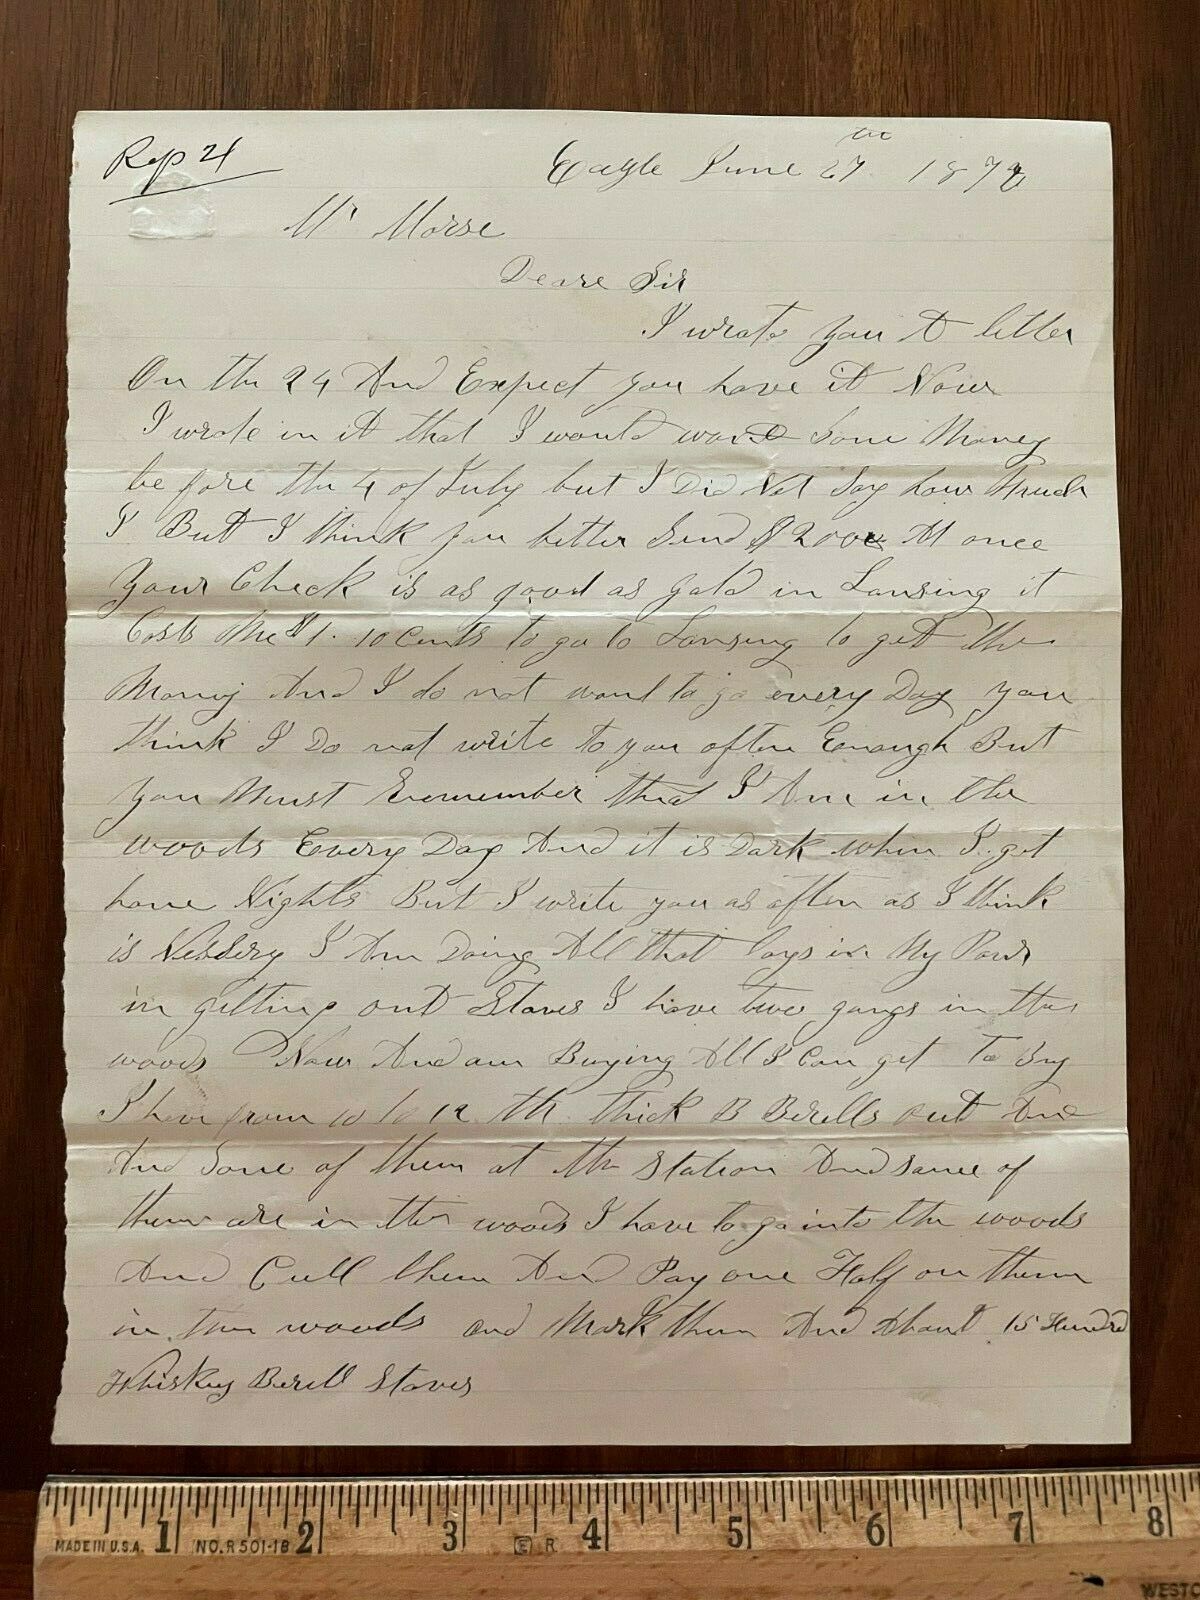 Rep 21
Eagle June 27th 187
Mr Morse
Deare Sir
I wrote you A letter
On the 24 And Expect you have it Now
I wrote in it that I would want Some Money
be fore the 4 of July but I Did Not Say how Much
I But I think you better Send $200 At once
Your Check is as good as gold in Lansing it
Costs Me $1.10 Cents to go to Lansing to get the
Money And I do not want to go every Day you
think I Do not write to you often Enough But
you Must Rememember that I Am in the
woods Every Day And it is Dark when I get
home Nights But I write you as often as I think
is I Am Doing All that lays in My Powr
in getting out Staves I have two gangs in the
woods Now And am Buying All I Can get To Buy
I have from 10 to 12 th thick B Berells out And
And Some of them at the Station And some of
them are in the woods I have to go into the woods
And Cull them And Pay one Half on them
in the woods and Mark them And About 15 Hundrd
Whiskey Berell Staves
1 2 3 4 5 6 7 8
MADE IN U.S.A. NO. R501-18 E R. WESTC